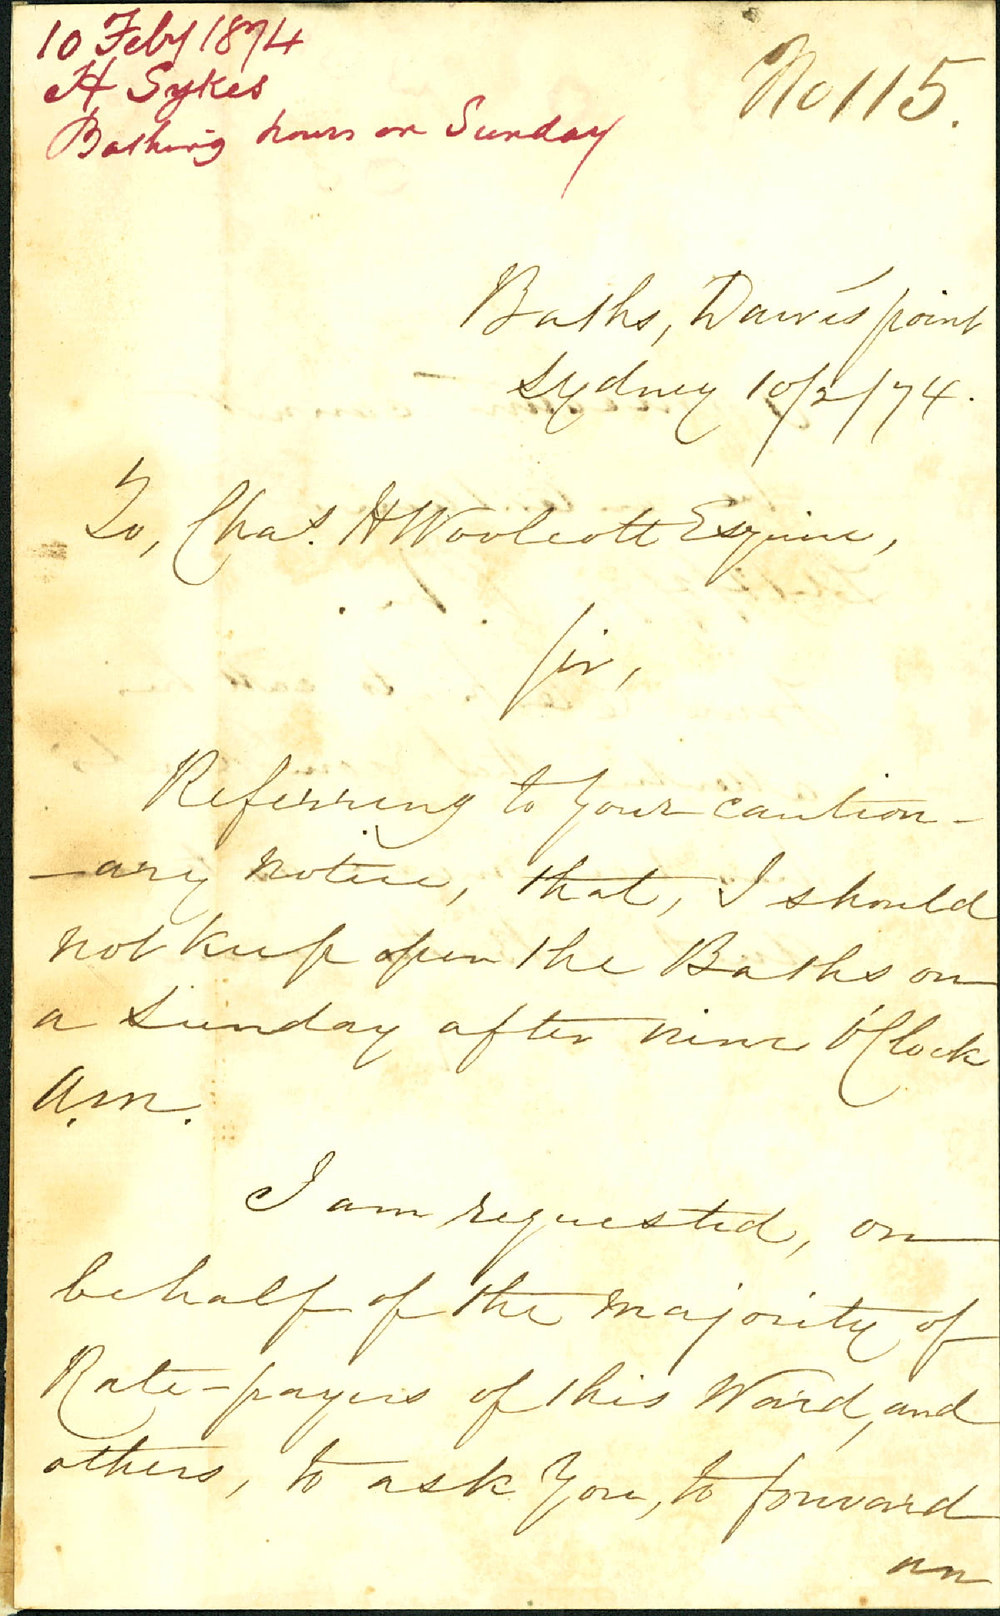 10 Feby 1874
H Sykes
Bathing hours on Sunday
No 115.
Baths, Dawes point
Sydney 10/2/74.
To, Chas. H Woolcott Esquire,
Sir,
Referring to Your caution-
-ary notice, that, I should
not keep open the Baths on
a Sunday after nine O'Clock
a.m.
I am requested, on
behalf of the majority of
Rate-payers of this Ward, and
others, to ask You, to forward
an